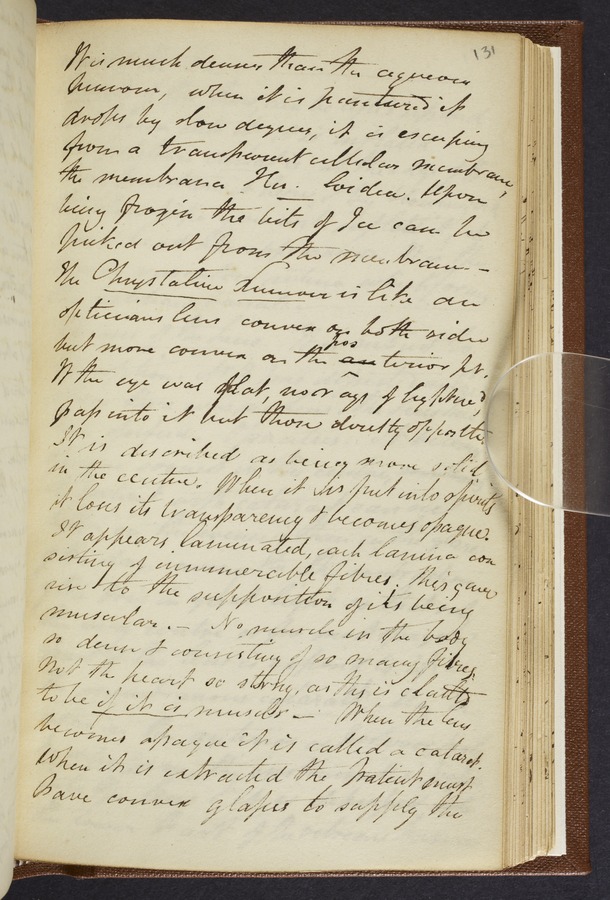 131
It is much denser than the aqueous
humour, when it is punctured it
drops by slow degrees, it is escaping
from a transparent cellular membrane,
the membrana Hya loidea. Upon
being frozen the bits of Ice can be
picked out from the membrane -
The Chrystaline Humour is like an
opticians lens convex on both sides
but more convex on the an terior pt.
pos
If the eye was flat, no rays of light
pass into it but those directly opposite.
It is described as being more solid
in the centre. When it is put into spirits
it loses its transparency & becomes opaque.
It appears laminated, each lamina con
sisting of innumerable fibres. This gave
rise to the supposition of its being
muscular. - No muscle in the body
so dense & consisting of so many fibres
not the heart so strong, as this is
to be if it is muscular - When the lens
becomes opaque it is called a cataract.
When it is extracted the Patient must
have convex glasses to supply the